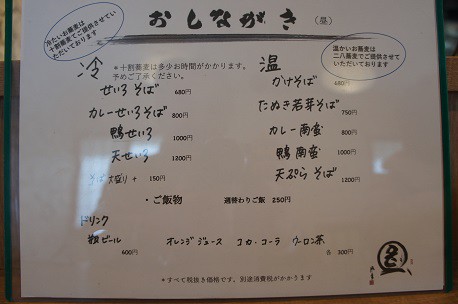 おしながき（昼）
冷たいお蕎麦は
十割蕎麦でご提供させていただいております
温かいお蕎麦は
二八蕎麦でご提供させて
いただいております
冷
＊十割蕎麦は多少お時間がかかります。
予めご了承ください。
せいろそば 680円
カレーせいろそば 800円
鴨せいろ 1000円
天せいろ 1200円
そば大盛り + 150円
温
かけそば 680円
たぬき若芽そば 750円
カレー南蛮 800円
鴨南蛮 1000円
天ぷらそば 1200円
・ご飯物 週替わりご飯 250円
ドリンク
瓶ビール 600円
オレンジジュース コカ・コーラ ウーロン茶 各300円
＊すべて税抜き価格です。別途消費税がかかります